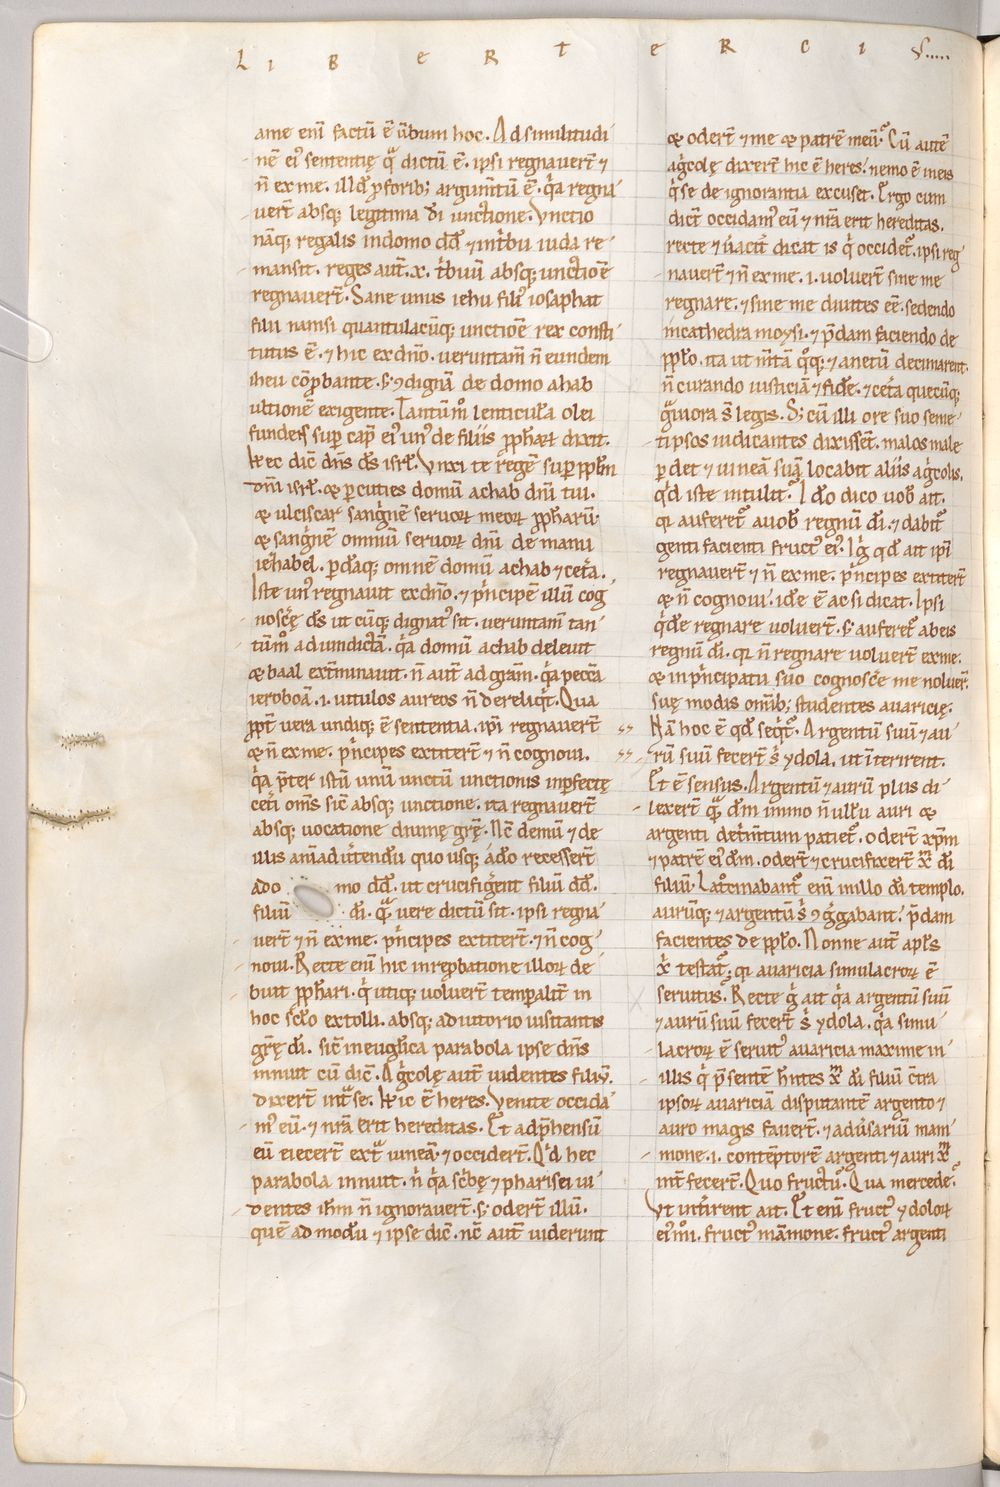 L I B E R T E R C I V....
ame enī factū ē ūbum hoc. Ad similitudi
nē eiꝰ sententię qᷓ dictū ē. ipsi regnauert̄ ⁊
n̄ ex me. illđ ꝓforib; argum̄tū ē. q̇a regna
uert̄ absq; legitima đi unctione. Vnctio
nāq; regalis in domo dđ ⁊ int̄bu iuda re
mansit. reges aut̄. x. t̄buū absq; unctiōe
regnauert̄. Sane unus iehu filiꝰ iosaphat
filii namsi quantulacūq; unctiōe rex consti
tutus ē. ⁊ hic ex dn̄o. ueruntam̄ n̄ eundem
iheu cōꝓbante. sꝫ ꝯdignā de domo ahab
ultionē exigente. Tantūm̊ lenticula olei
funders suꝑ cap̄ eiꝰ unꝰ de filiis ꝓphaꝝ dixit.
Hec dic̄ dn̄s đs isrł. Vnxi te regē suꝑ ppłm
dn̄i isrł. & ꝑcuties domū achab dn̄i tui.
& ulciscar sanġnē seruoꝝ meoꝝ ꝓphaꝝ.
& sanġnē omniū seruoꝝ dn̄i de manu
iezhabel. ꝑdāq; omnē domū achab ⁊ cet̄a.
Iste unꝰ regnauit ex dn̄o. ⁊ pͥncipē illū cog
nosc̄ę đs ut cūq; dignatꝰ sit. ueruntam̄ tan
tūm̊ ad uindictā. q̇a domū achab deleuit
& baal ext̄minauit. n̄ aut̄ ad gr̄am. q̇a pecc̄a
ieroboā. i. uitulos aureos n̄ dereliq̇t. Qua
ꝓpt̄ uera undiq; ē sententia. ip̄i regnauert̄
& n̄ ex me. pͥncipes extitert̄ ⁊ n̄ cognoui.
q̇a p̄ter istū unū unctū unctionis inꝑfectę
cet̄i om̄s sic̄ absq; unctione. ita regnauert̄
absq; uocatione diuinę gr̄ę. Nc̄ demū ⁊ de
illis am̄aduertendū quo usq; a đo recessert̄
a do mo dđ. ut crucifiġent filiū dđ.
filiū đi. qᷓ uere dictū sit. ipsi regna
uert̄ ⁊ n̄ ex me. pͥncipes extitert̄. ⁊ n̄ cog
noui. Recte enī hic in reꝓbatione illoꝝ de
buit ꝓphari. q̇ utiq; uoluert̄ tempalit̄ in
hoc scło extolli. absq; adiutorio uisitantis
gr̄ę đi. sic̄ in euglica parabola ipse dn̄s
innuit cū dic̄. Ag̊colę aut̄ uidentes filiū.
dixert̄ intᷓ se. Hic ē heres. Venite occida
mꝰ eū. ⁊ nr̄a erit hereditas. Et adp̄hensū
eū eiecert̄ extᷓ uineā. ⁊ occidert̄. Qđ hec
parabola innuit. n̄ q̇a sc̄bę ⁊ pharisei ui
dentes ih̄m n̄ ignorauert̄. sꝫ odert̄ illū.
quē ad modū ⁊ ipse dic̄. nc̄ aut̄ uiderunt
& odert̄ ⁊ me & patrē meū. Cū autē
ag̊colę dixert̄ hic ē heres. nemo ē meis
q̇ se de ignorantia excuset. Ergo cum
dict̄ occidamꝰ eū ⁊ nr̄a erit hereditas.
recte ⁊ ūacit̄ dicat is q̇ occidet᷑. ipsi reg
nauert̄ ⁊ n̄ ex me. i. uoluert̄ sine me
regnare. ⁊ sine me diuites eē. sedendo
in cathedra moysi. ⁊ p̄dam faciendo de
ppło. ita ut m̄tā q̊q; ⁊ anetū decimarent.
n̄ curando iusticiā ⁊ fidē. ⁊ cet̄a quecūq;
gᷓuiora s̄ legis. Sꝫ cum illi ore suo seme
tipsos iudicantes dixissēt. malos male
ꝑdet ⁊ uineā suā locabit aliis ag̊colis.
qđ iste intulit. Ido dico uob̄ ait.
q̇ auferet᷑ a uob̄ regnū đi. ⁊ dabit᷑
genti facienti fructꝰ eiꝰ. Iġ qđ ait ip̄i
regnauert̄ ⁊ n̄ ex me. pͥncipes extitert̄
& n̄ cognoui. idē ē ac si dicat. Ipsi
q̇dē regnare uoluert̄. sꝫ auferet᷑ ab eis
regnū đi. q̇ n̄ regnare uoluert̄ ex me.
& in pͥncipatu suo cognosc̄e me noluer̄t.
suę modis om̄ib; studentes auaricię.
Nā hoc ē qđ seq̇t᷑. Argentū suū ⁊ au
rū suū fecert̄ s̄ ydola. ut īterirent.
Et ē sensus. Argentū ⁊ aurū plus di
lexert̄ qᷓ đm immo n̄ ullū auri &
argenti det̄m̄tum patiet᷑. odert̄ xp̄m
⁊ patrē eiꝰ đm. odert̄ ⁊ crucifixert̄ xp̄m đi
filiū. Latͦcinabant᷑ enī in illo đi templo.
aurūq; ⁊ argentū s̄ ꝯġgabant. p̄dam
facientes de ppło. Nonne aut̄ apłs
x̄ testat᷑. q̇ auaricia simulacroꝝ ē
seruitus. Recte ġ ait q̇a argentū suū
⁊ aurū suū fecert̄ s̄ ydola. q̇a simu
lacroꝝ ē seruitꝰ auaricia maxime in
illis q̇ p̄sentē hn̄tes xp̄m đi filiū cͦtra
ipsoꝝ auariciā disputantē argento ⁊
auro magis fauert̄. ⁊ aduersariū mam
mone. i. contēptorē argenti ⁊ auri xp̄m
int̄fecert̄. Quo fructu. Qua mercede.
Vt int̄irent ait. Et enī fructꝰ ydoloꝝ
eiꝰm̊i. fructꝰ māmone. fructꝰ argenti